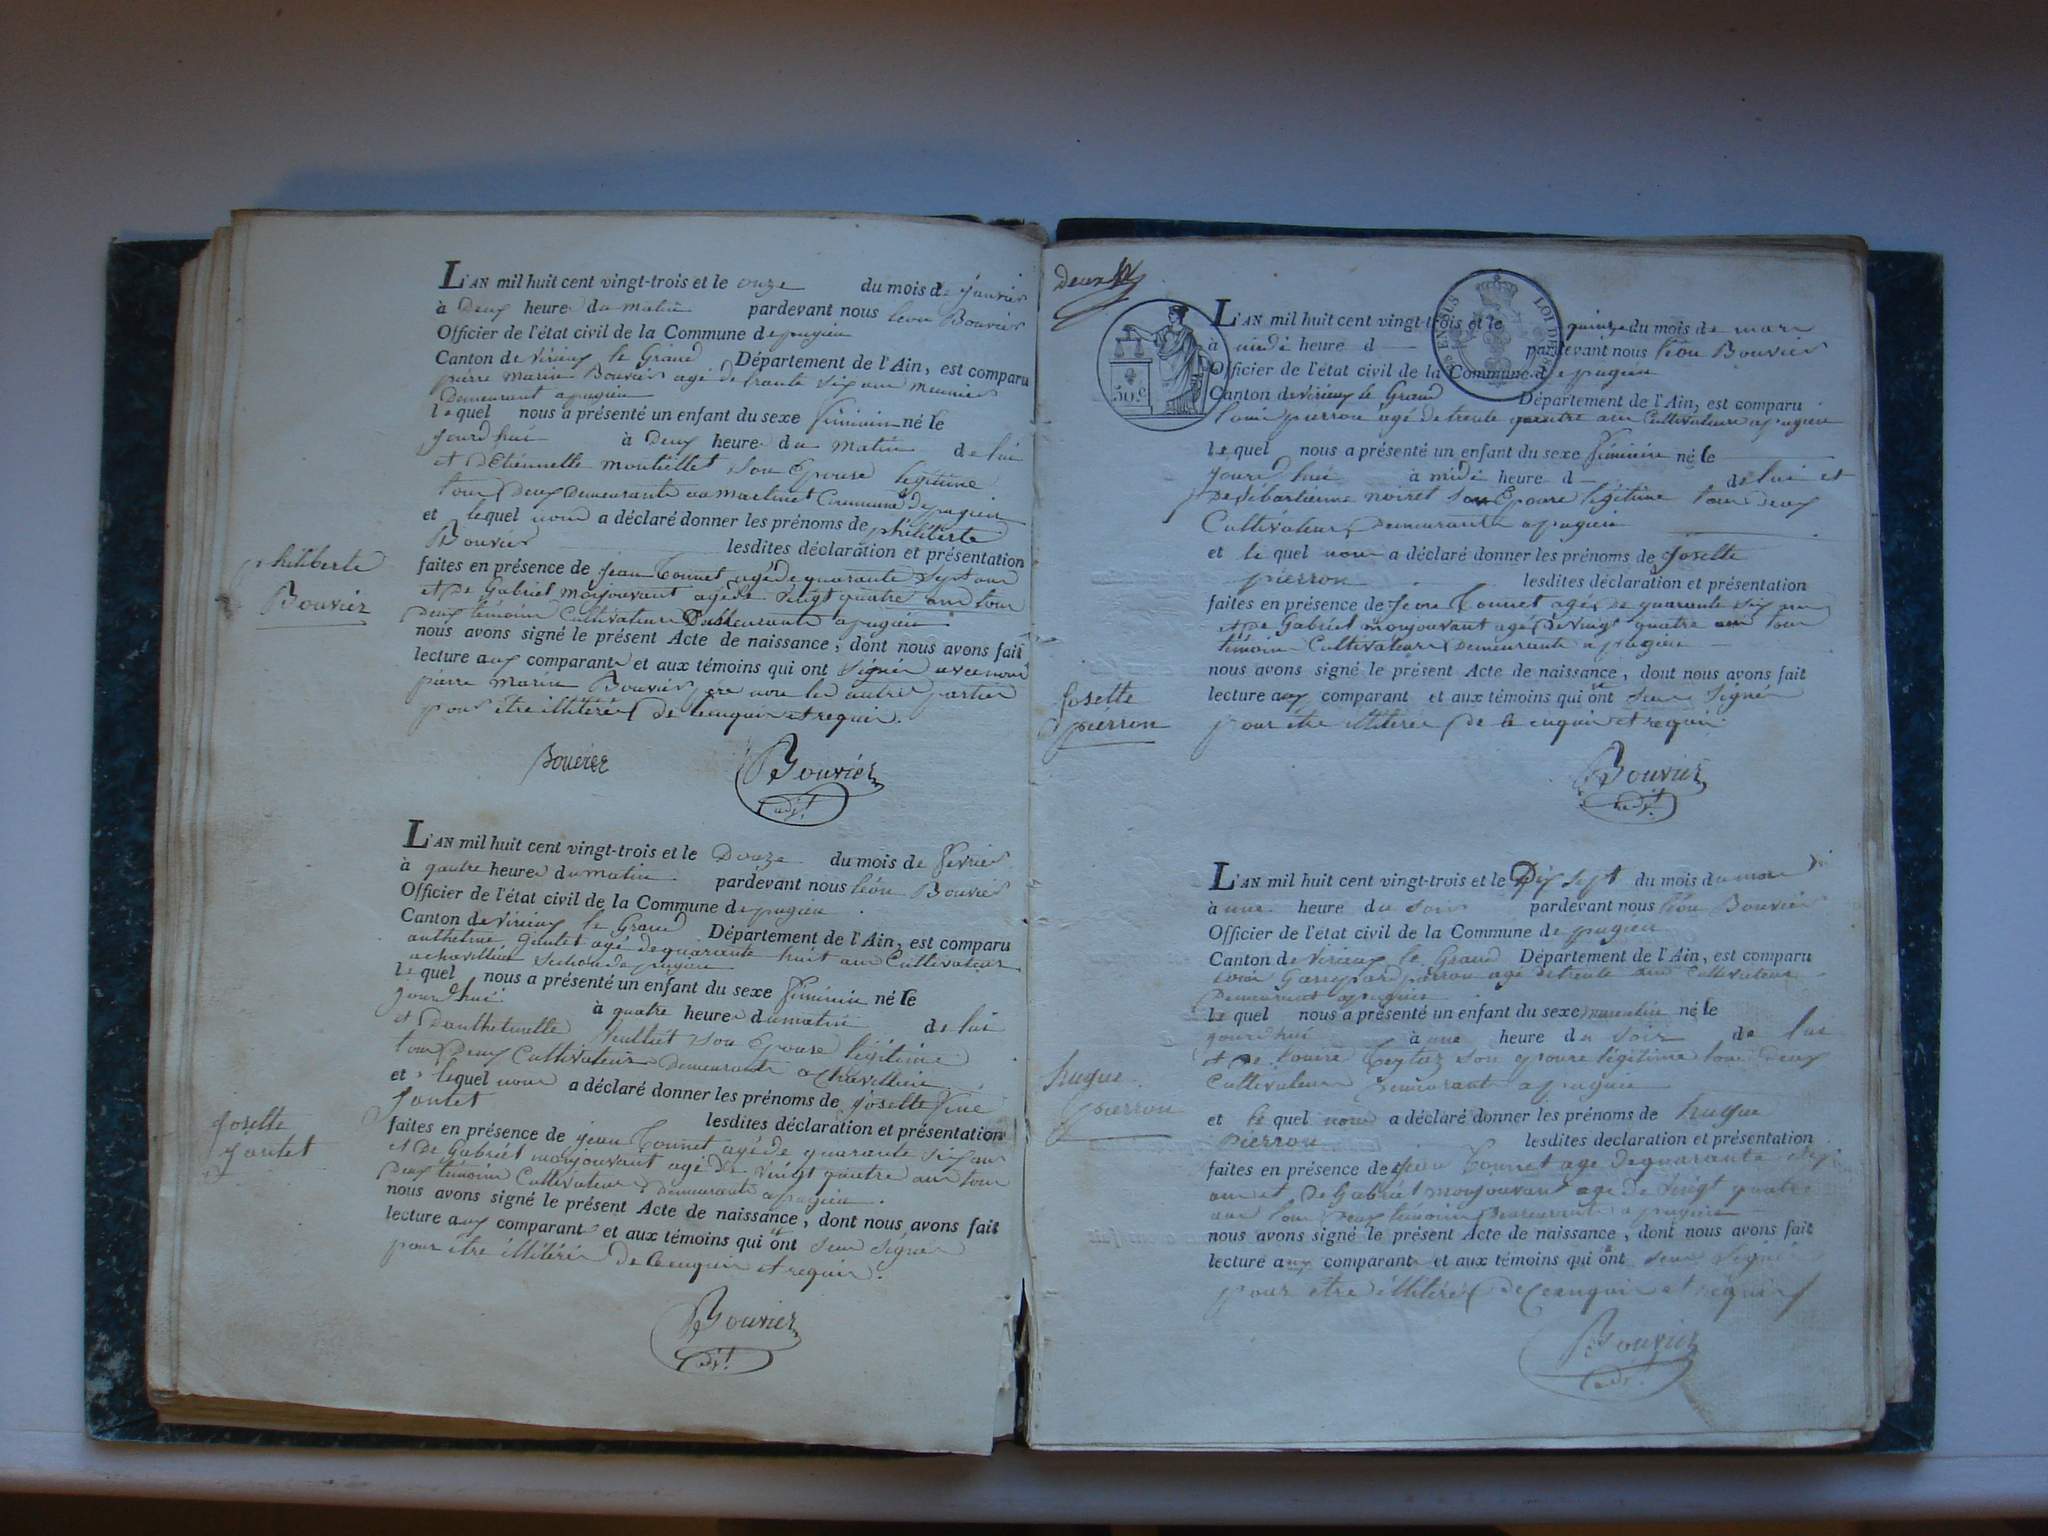 L'AN mil huit cent vingt-trois et le onze du mois de janvier
à Deux heure du matin pardevant nous léon Bouvier
Officier de l'état civil de la Commune de pugieu
Canton de Virieux le Grand Département de l'Ain, est comparu
pierre marin Bouvier agé de trante six ans meunier
Demeurant a pugieu
lequel nous a présenté un enfant du sexe féminin né le
jourd'hui à Deux heure du matin de lui
et d'Etiennette montillet son Epouse légitime
tous Deux Demeurants au martinet Commune de pugieu
et lequel nous a déclaré donner les prénoms de philiberte
Bouvier lesdites déclaration et présentation
philiberte
Bouvier
faites en présence de jean Tonnet agé de quarante sept ans
et De Gabriel monjouvant agé de vingt quatre ans tous
Deux témoins Cultivateurs Demeurants a pugieu
nous avons signé le présent Acte de naissance, dont nous avons fait
lecture aux comparants et aux témoins qui ont signés avec nous
pierre marin Bouvier père non les autres parties
pour être illitérés de ce enquis et requis.
Bouvier
Bouvier
adjt.
L'AN mil huit cent vingt-trois et le Douze du mois de fevrier
à quatre heures du matin pardevant nous léon Bouvier
Officier de l'état civil de la Commune de pugieu
Canton de Virieux le Grand Département de l'Ain, est comparu
anthelme agé de quarante huit ans Cultivateur
a chavillieu de pugieu
lequel nous a présenté un enfant du sexe féminin né le
jourd'hui à quatre heures du matin de lui
et D'anthelmette son Epouse légitime
tous Deux Cultivateurs Demeurants a Chavillieu
et lequel nous a déclaré donner les prénoms de josette
lesdites déclaration et présentation
josette
faites en présence de jean Tonnet agé de quarante six ans
et De Gabriel monjouvant agé de vingt quatre ans tous
Deux témoins Cultivateurs Demeurants a pugieu.
nous avons signé le présent Acte de naissance, dont nous avons fait
lecture aux comparants et aux témoins qui ont seur signés
pour être illitérés de ce enquis et requis.
Bouvier
adjt.
Deux
50 c
EN SUS
LOI DE
L'AN mil huit cent vingt-trois et le quinze du mois de mars
à midi heure d pardevant nous léon Bouvier
Officier de l'état civil de la Commune de pugieu
Canton de Virieux le Grand Département de l'Ain, est comparu
louis pierron agé de trente quatre ans Cultivateur a pugieu
lequel nous a présenté un enfant du sexe féminin né le
jourd'hui à midi heure d de lui et
De sébastienne noiret son Epouse légitime tous deux
Cultivateurs Demeurants a pugieu
et lequel nous a déclaré donner les prénoms de josette
pierron lesdites déclaration et présentation
faites en présence de jean Tonnet agé de quarante six ans
et De Gabriel monjouvant agé de vingt quatre ans tous
témoins Cultivateurs Demeurants a pugieu
nous avons signé le présent Acte de naissance, dont nous avons fait
lecture aux comparant et aux témoins qui ont seur signés
pour être illitérés de ce enquis et requis
josette
pierron
Bouvier
adjt.
L'AN mil huit cent vingt-trois et le Dix sept du mois du mars
à une heure du soir pardevant nous léon Bouvier
Officier de l'état civil de la Commune de pugieu
Canton de Virieux le Grand Département de l'Ain, est comparu
louis Gaspard pierron agé de trente ans Cultivateur
Demeurant a pugieu
lequel nous a présenté un enfant du sexe masculin né le
jourd'hui à une heure du soir de lui
et De louise son epouse légitime tous Deux
Cultivateurs Demeurant a pugieu
et lequel nous a déclaré donner les prénoms de hugue
pierron lesdites declaration et présentation
hugue
pierron
faites en présence de jean Tonnet agé de quarante
ans et De Gabriel monjouvant agé de vingt quatre
ans tous Deux témoins Demeurants a pugieu
nous avons signé le présent Acte de naissance, dont nous avons fait
lecture aux comparants et aux témoins qui ont seur signé
pour être illitérés de ce enquis et requis
Bouvier
adjt.